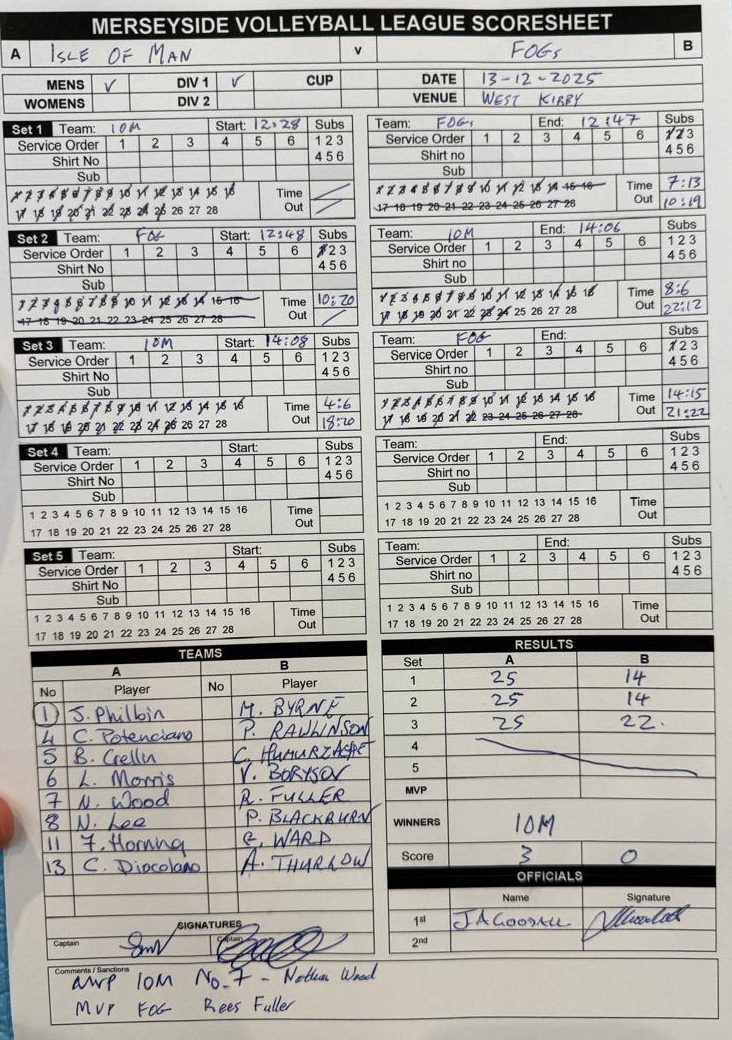 MERSEYSIDE VOLLEYBALL LEAGUE SCORESHEET
A ISLE OF MAN v FOGs B
MENS ✓ DIV 1 ✓ CUP DATE 13-12-2025
WOMENS DIV 2 VENUE WEST KIRBY
Set 1 Team: IOM Start: 12:28 Subs
Service Order 1 2 3 4 5 6 1 2 3
Shirt No 4 5 6
Sub
1 2 3 4 5 6 7 8 9 10 11 12 13 14 15 16 Time
17 18 19 20 21 22 23 24 25 26 27 28 Out
Team: FOGs End: 12:47 Subs
Service Order 1 2 3 4 5 6 1 2 3
Shirt no 4 5 6
Sub
1 2 3 4 5 6 7 8 9 10 11 12 13 14 15 16 Time 7:13
17 18 19 20 21 22 23 24 25 26 27 28 Out 10:19
Set 2 Team: FOG Start: 12:48 Subs
Service Order 1 2 3 4 5 6 1 2 3
Shirt No 4 5 6
Sub
1 2 3 4 5 6 7 8 9 10 11 12 13 14 15 16 Time 10:20
17 18 19 20 21 22 23 24 25 26 27 28 Out
Team: IOM End: 14:06 Subs
Service Order 1 2 3 4 5 6 1 2 3
Shirt no 4 5 6
Sub
1 2 3 4 5 6 7 8 9 10 11 12 13 14 15 16 Time 8:6
17 18 19 20 21 22 23 24 25 26 27 28 Out 22:12
Set 3 Team: IOM Start: 14:08 Subs
Service Order 1 2 3 4 5 6 1 2 3
Shirt No 4 5 6
Sub
1 2 3 4 5 6 7 8 9 10 11 12 13 14 15 16 Time 4:6
17 18 19 20 21 22 23 24 25 26 27 28 Out 18:20
Team: FOG End: Subs
Service Order 1 2 3 4 5 6 1 2 3
Shirt no 4 5 6
Sub
1 2 3 4 5 6 7 8 9 10 11 12 13 14 15 16 Time 14:15
17 18 19 20 21 22 23 24 25 26 27 28 Out 21:22
Set 4 Team: Start: Subs
Service Order 1 2 3 4 5 6 1 2 3
Shirt No 4 5 6
Sub
1 2 3 4 5 6 7 8 9 10 11 12 13 14 15 16 Time
17 18 19 20 21 22 23 24 25 26 27 28 Out
Team: End: Subs
Service Order 1 2 3 4 5 6 1 2 3
Shirt no 4 5 6
Sub
1 2 3 4 5 6 7 8 9 10 11 12 13 14 15 16 Time
17 18 19 20 21 22 23 24 25 26 27 28 Out
Set 5 Team: Start: Subs
Service Order 1 2 3 4 5 6 1 2 3
Shirt No 4 5 6
Sub
1 2 3 4 5 6 7 8 9 10 11 12 13 14 15 16 Time
17 18 19 20 21 22 23 24 25 26 27 28 Out
Team: End: Subs
Service Order 1 2 3 4 5 6 1 2 3
Shirt no 4 5 6
Sub
1 2 3 4 5 6 7 8 9 10 11 12 13 14 15 16 Time
17 18 19 20 21 22 23 24 25 26 27 28 Out
TEAMS
A B
No Player No Player
1 J. Philbin M. BYRNE
4 C. Potenciano P. RAWLINSON
5 B. Crellin C.
6 L. Morris V. BORYSOV
7 N. Wood R. FULLER
8 N. Lee P. BLACKBURN
11 F. Horning C. WARD
13 C. Diocolano A. THURLOW
SIGNATURES
Captain Captain
RESULTS
Set A B
1 25 14
2 25 14
3 25 22
4
5
MVP
WINNERS IOM
Score 3 0
OFFICIALS
Name Signature
1st J A GOODALL
2nd
Comments / Sanctions
MVP IOM No.7 - Nathan Wood
MVP FOG Rees Fuller